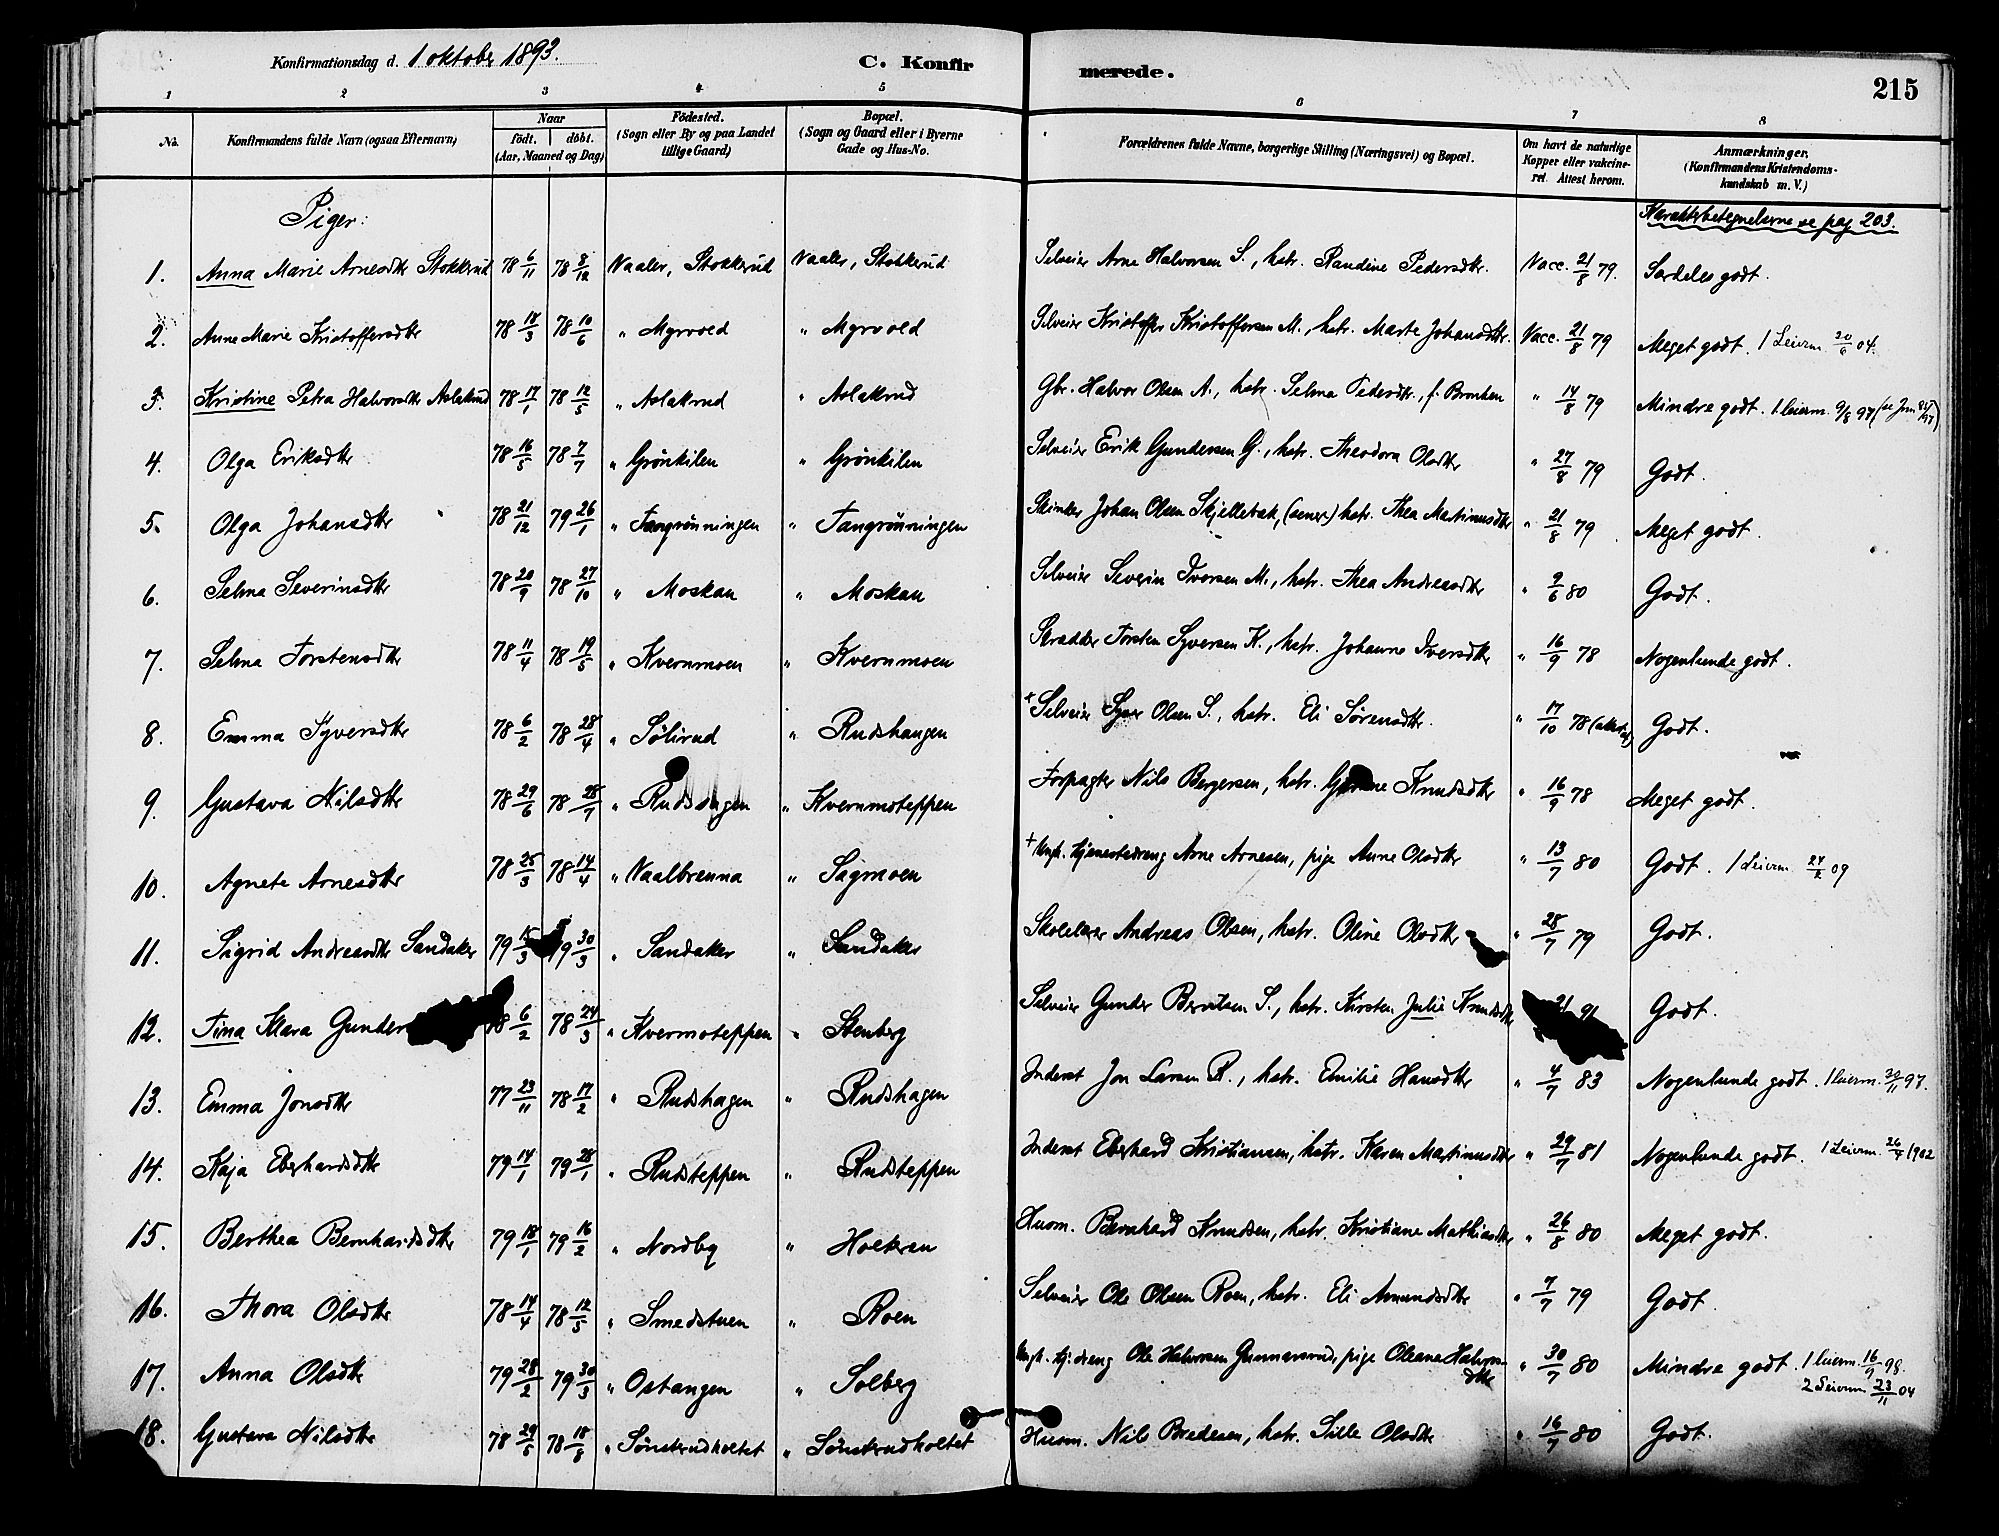 Konfirmationsdag d. 1 oktober 1893.
C. Konfirmerede.
215
1 2 3 4 5 6 7 8
No.
Konfirmandens fulde Navn (ogsaa Efternavn)
Naar
födt. döbt.
(Aar, Maaned og Dag)
Födested.
(Sogn eller By og paa Landet
tillige Gaard)
Bopæl.
(Sogn og Gaard eller i Byerne
Gade og Hus-No.
Forældrenes fulde Navne, borgerlige Stilling (Næringsvei) og Bopæl.
Om havt de naturlige
Kopper eller vakcine-
ret. Attest herom.
Anmærkninger.
(Konfirmandens Kristendoms-
kundskab m. V.)
Piger:
Karakterbetegnelserne se pag 203.
1. Anna Marie Arnesdtr Stokkerud 78 6/11 78 8/12 Vaaler, Stokkerud Vaaler, Stokkerud Selveier Arne Halvorsen S., hstr. Randine Pedersdtr. Vacc. 21/8 79. Særdeles godt.
2. Anne Marie Kristoffersdtr 78 17/3 78 10/6 " Myrvold " Myrvold Selveier Kristoffer Kristoffersen M., hstr. Marte Johansdtr. Vacc. 21/8 79 Meget godt. 1 Leierm. 20/6 04.
3. Kristine Petra Halvorsdtr Aslakrud 78 17/1 78 12/5 " Aslakrud " Aslakrud Gbr. Halvor Olsen A., hstr. Selma Pedersdtr., f. Bronken " 14/8 79 Mindre godt. 1 leierm. 9/8 97 (se Jrn
4. Olga Eriksdtr 78 16/5 78 7/7 " Grönkilen " Grönkilen Selveier Erik Gundersen G., hstr. Theodora Olsdtr " 27/8 79 Godt.
5. Olga Johansdtr 78 21/12 79 26/1 " Tangrönningen " Tangrönningen Skinder Johan Olsen Skjellebæk, (senere) hstr. Thea Martinusdtr " 21/8 79 Meget godt.
6. Selma Severinsdtr 78 20/9 78 27/10 " Moskau " Moskau Selveier Severin Iversen M., hstr. Thea Andreasdtr " 9/6 80 Godt.
7. Selma Torstensdtr 78 11/4 78 19/5 " Kvernmoen " Kvernmoen Skrædder Torsten Syversen K., hstr. Johanne Iversdtr " 16/9 78 Nogenlunde godt.
8. Emma Syversdtr 78 6/2 78 28/4 " Sölirud " Rudshaugen + Selveier Syver Olsen S., hstr. Eli Sörensdtr. " 17/10 78 Godt.
9. Gustava Nilsdtr 78 29/6 78 28/7 " " Kvernmoteppen Forpagter Nils Bergersen, hstr. Knudsdtr " 16/9 78 Meget godt.
10. Agnete Arnesdtr 78 25/3 78 14/4 " Vaalbrenna " Sagmoen + Ungk. tjenestedreng Arne Arnesen, pige Anne Olsdtr " 13/7 80 Godt. 1 Leierm. 27/2 09
11. Sigrid Andreasdtr Sandaker 79 15/3 79 30/3 " Sandaker " Sandaker Skolelærer Andreas Olsen, hstr. Oline Olsdtr " 28/7 79 Godt.
12. Tina Klara Gunder 78 6/2 78 24/3 " Kvermoteppen " Stenberg Selveier Gunder Berntsen S., hstr. Kirsten Julie Knudsdtr 21 91 Godt.
13. Emma Jonsdtr 77 23/11 78 17/2 " Rudshagen " Rudshagen Inderst Jon Larsen R., hstr. Emilie Hansdtr " 4/7 83 Nogenlunde godt. 1 leierm. 30/11 97.
14. Kaja Eberhardsdtr 79 14/1 79 28/1 " Rudsteppen " Rudsteppen Inderst Eberhard Kristiansen, hstr. Karen Martinusdtr " 29/7 81 Nogenlunde godt. 1 Leierm. 26/4 1902
15. Berthea Bernhardsdtr 79 18/1 79 16/2 " Nordby " Holeran Husm. Bernhard Knudsen, hstr. Kristiane Mathiasdtr " 26/8 80 Meget godt.
16. Thora Olsdtr 78 14/4 78 12/5 " Smedstuen " Roen Selveier Ole Olsen Roen, hstr. Eli Amundsdtr " 7/7 79 Godt.
17. Anna Olsdtr 79 28/2 79 30/3 " Ostangen " Solberg Ungk. tj.dreng Ole Halvorsen Gunnarsrud, pige Oleane Halvors-
dtr " 30/7 80 Mindre godt. 1 leierm. 16/9 98.
2 Leierm. 23/11 04
18. Gustava Nilsdtr 78 29/5 78 18/6 " Sönsterudholtet " Sönsterudholtet Husm. Nils Bredesen, hstr. Sille Olsdtr " 16/7 80 Godt.